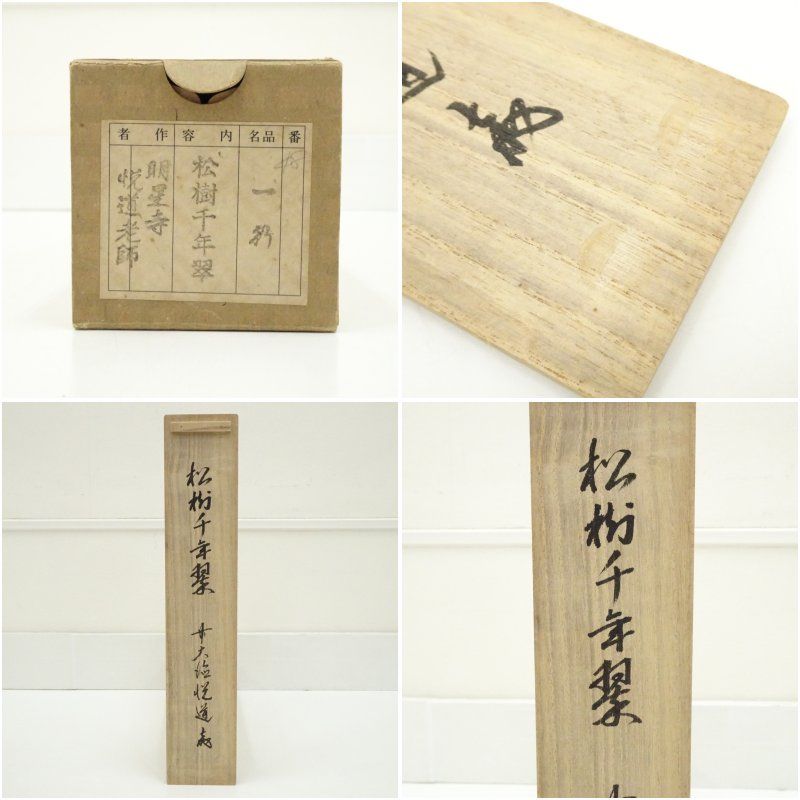 番
品名
内容
作者
一行
松樹千年翠
明星寺
悦道老師
書
松樹千年翠
悦道書
松樹千年翠